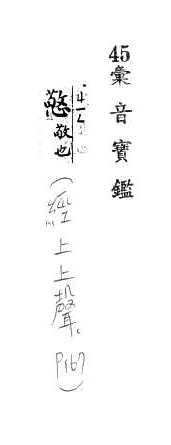 45彙音寶鑑
憨敬也
(經上上聲。P167)